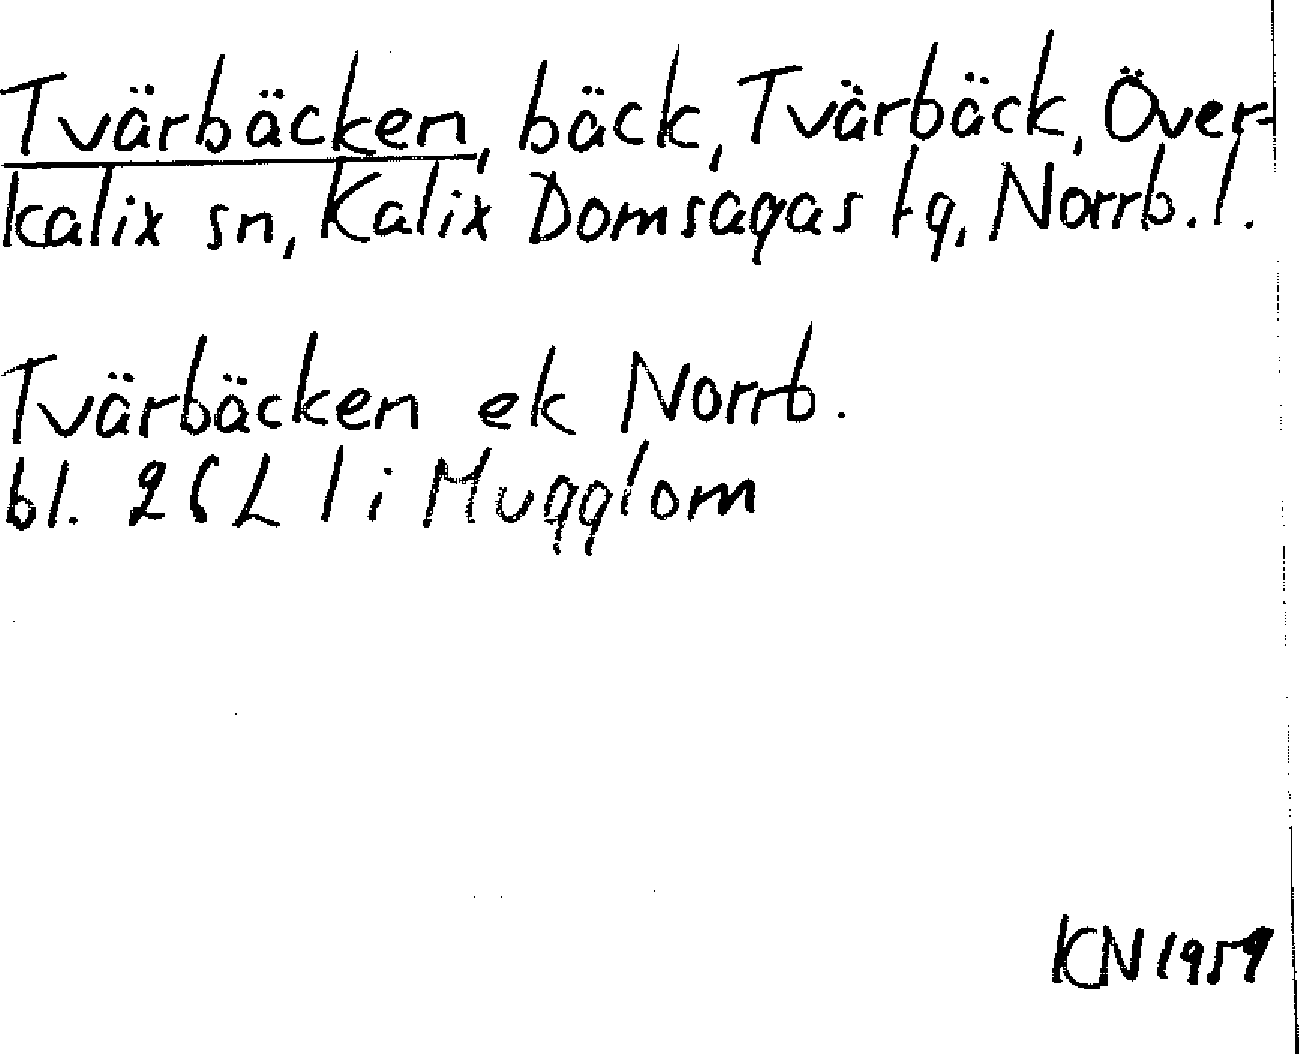 Tvärbäcken, bäck, Tvärbäck, Över-
kalix sn, Kalix Domsagas tg, Norrb. l.
Tvärbäcken ek Norrb.
bl. 26 L l i Mugglom
KN 1959